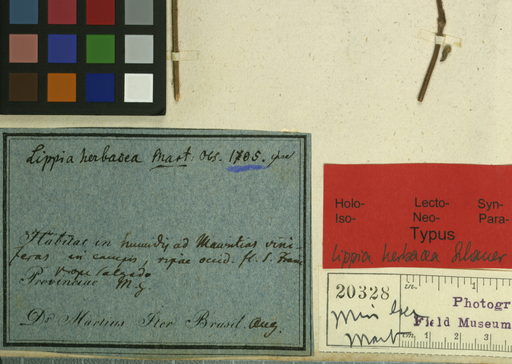 Lippia herbacea Mart: Obs. 1785.
Habitat in humidis ad Mauritias vini-
feras in campis, ripae occid. fl. S. Franc
Salgado
Provinciae M. g.
Dr Martius Iter Brasil. Aug.
Holo- Lecto- Syn-
Iso- Neo- Para-
Typus
Lippia herbacea Schauer
20328
Photogr
Field Museum
Mart
1 2 3